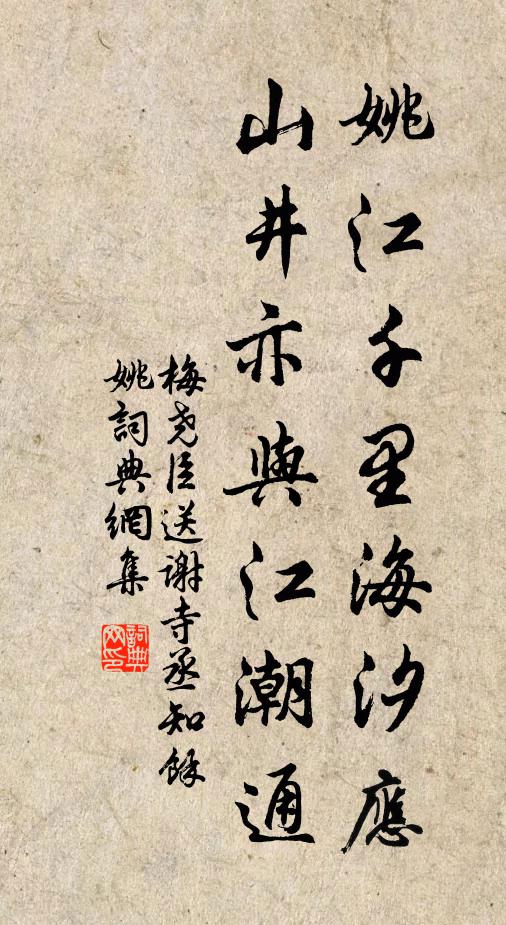 姚江千里海汐應
山井亦與江潮通
梅尧臣送谢寺丞知餘
姚詞典網集
詞典网印